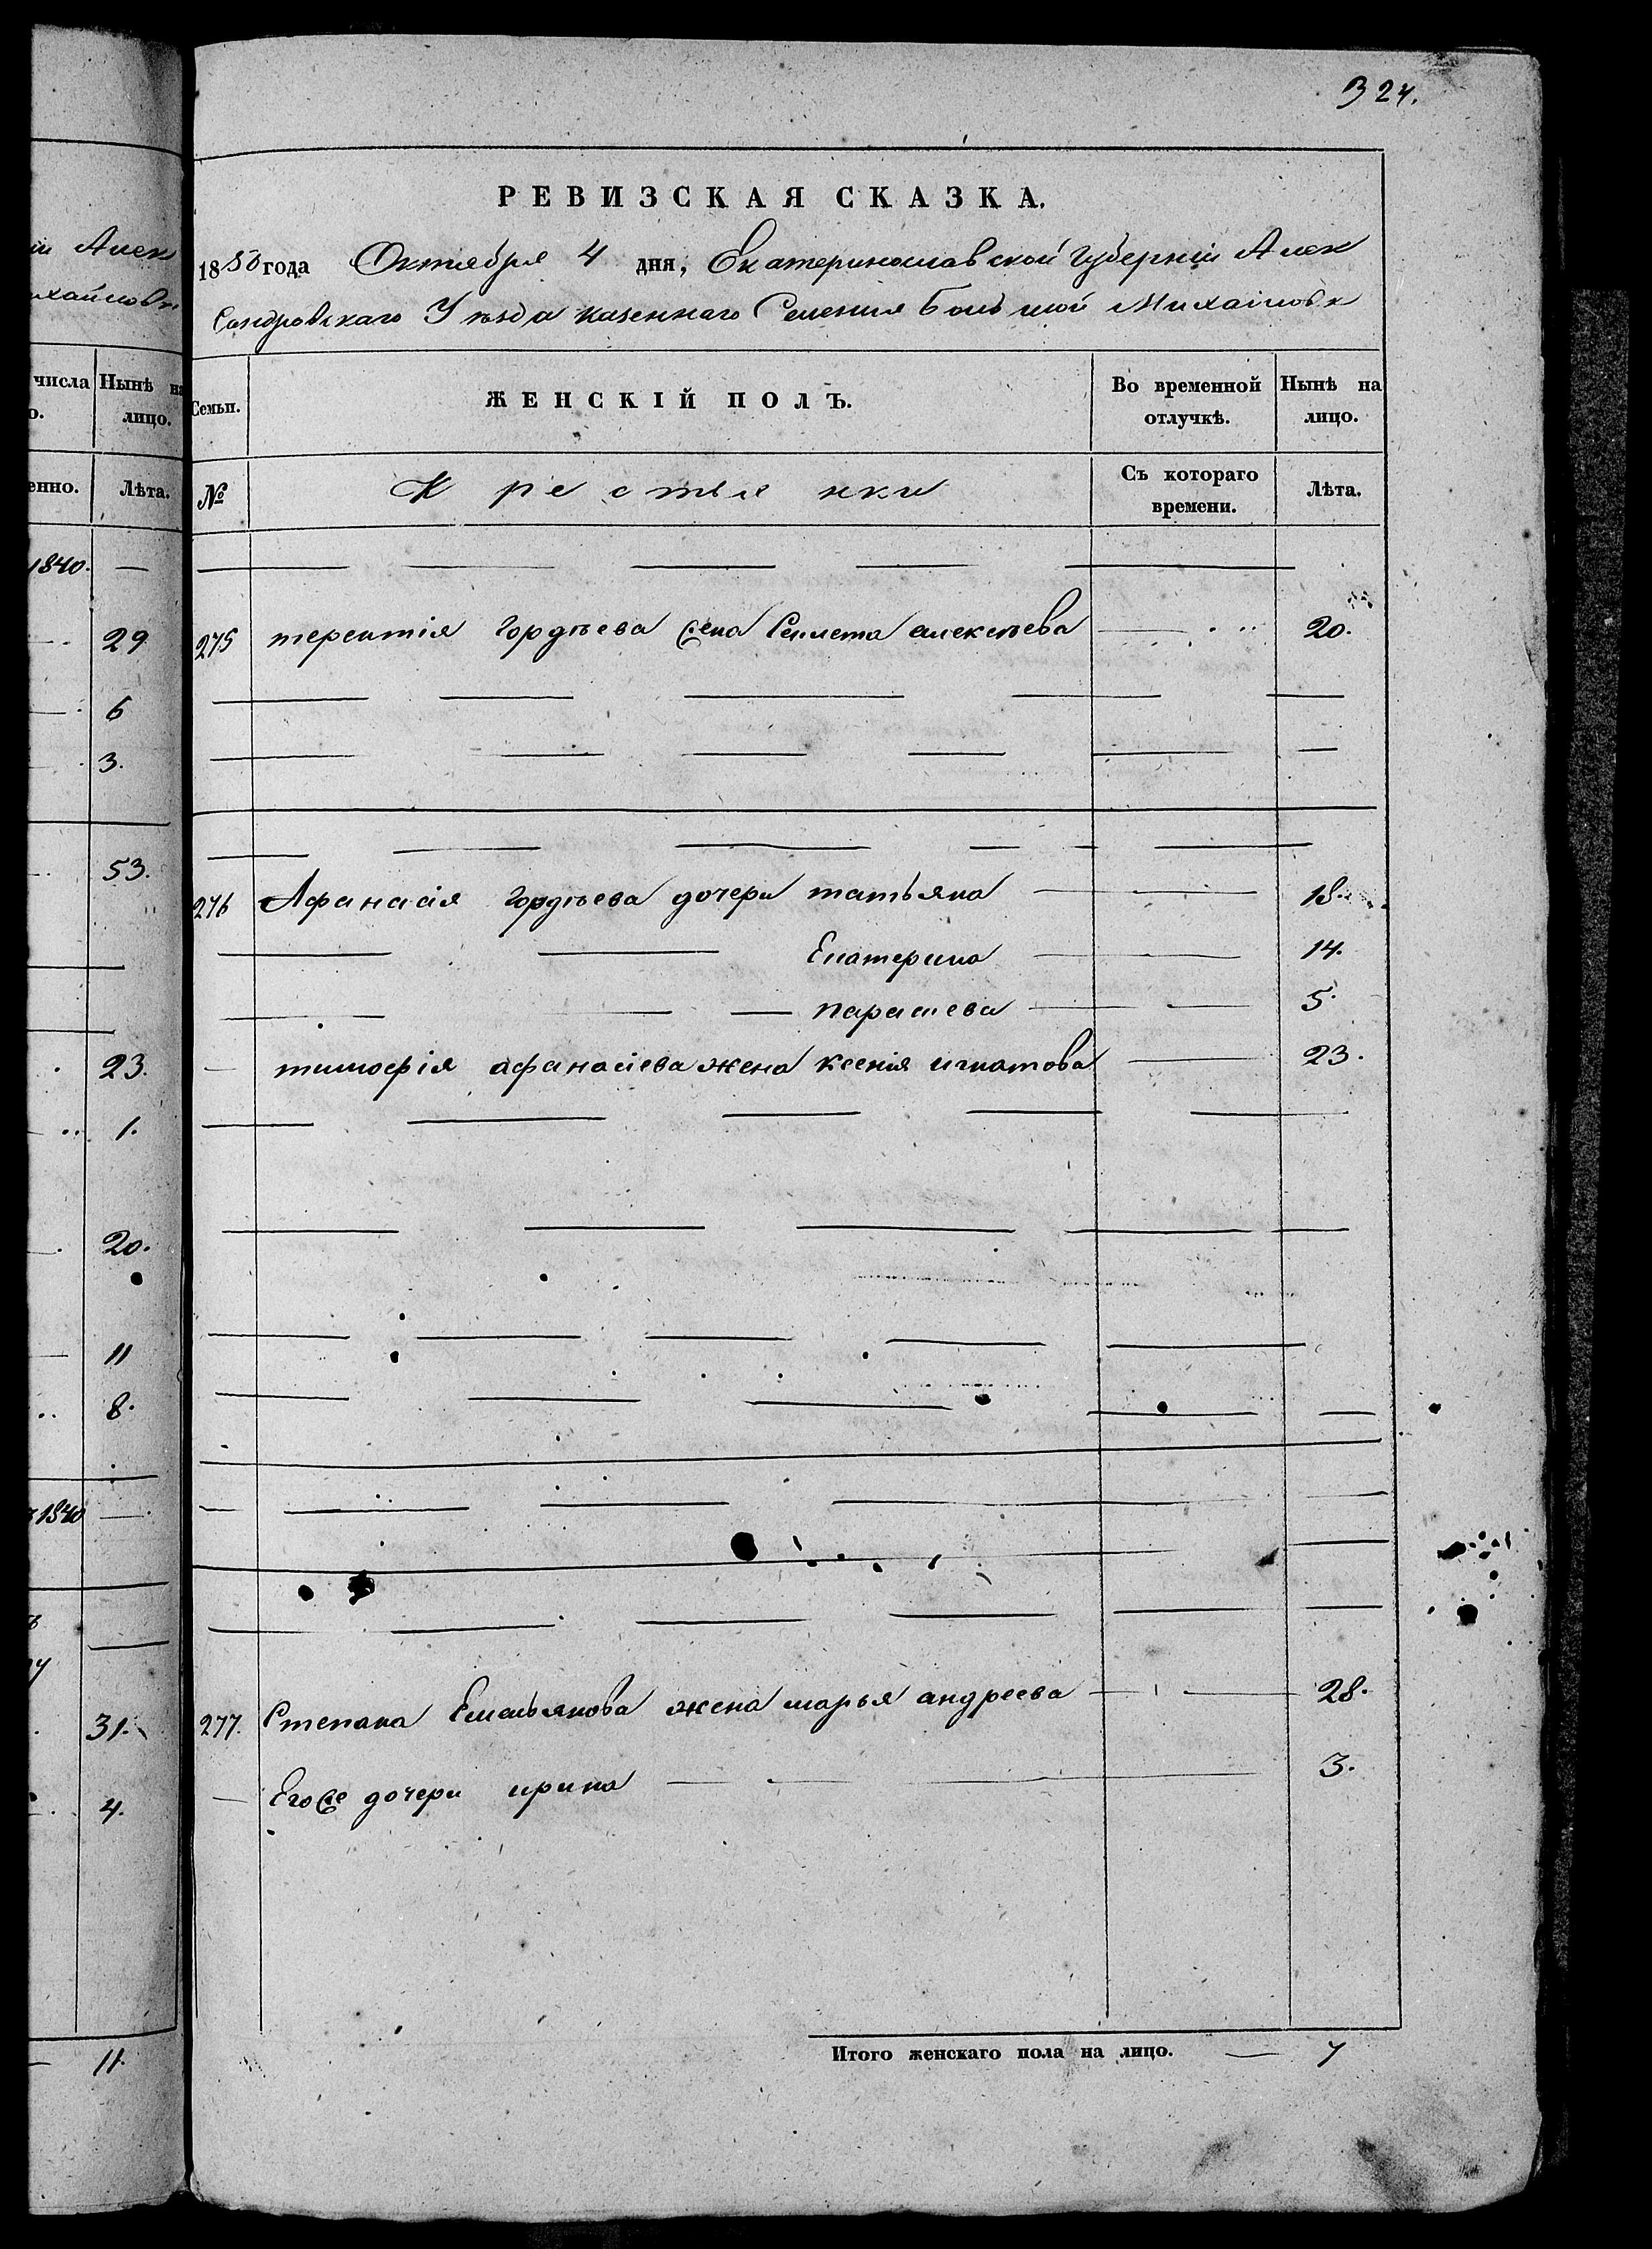 324.
РЕВИЗСКАЯ СКАЗКА.
1850 года Октября 4 дня, Екатеринославской Губерніи Алек
сандровскаго Уѣзда казеннаго Селенія Большой Михайловк
Семьи. ЖЕНСКІЙ ПОЛЪ. Во временной отлучкѣ. Нынѣ на лицо.
№ Крестьянки Съ котораго времени. Лѣта.
275 терентія гордѣева жена алексѣева 20.
276 Афанасія гордѣева дочери татьяна 18.
Екатерина 14.
парасева 5.
тимофія афанасіева жена ксенія игнатова 23.
277. Степана Емельянова жена марья андреева 28.
Егоже дочери ирина 3.
Итого женскаго пола на лицо. — 7
Алек
ихайловк
числа Нынѣ на
о. лицо.
енно. Лѣта.
1840. —
29
6
3.
53.
23.
1.
20.
11
8.
1840 —
31.
4.
11.